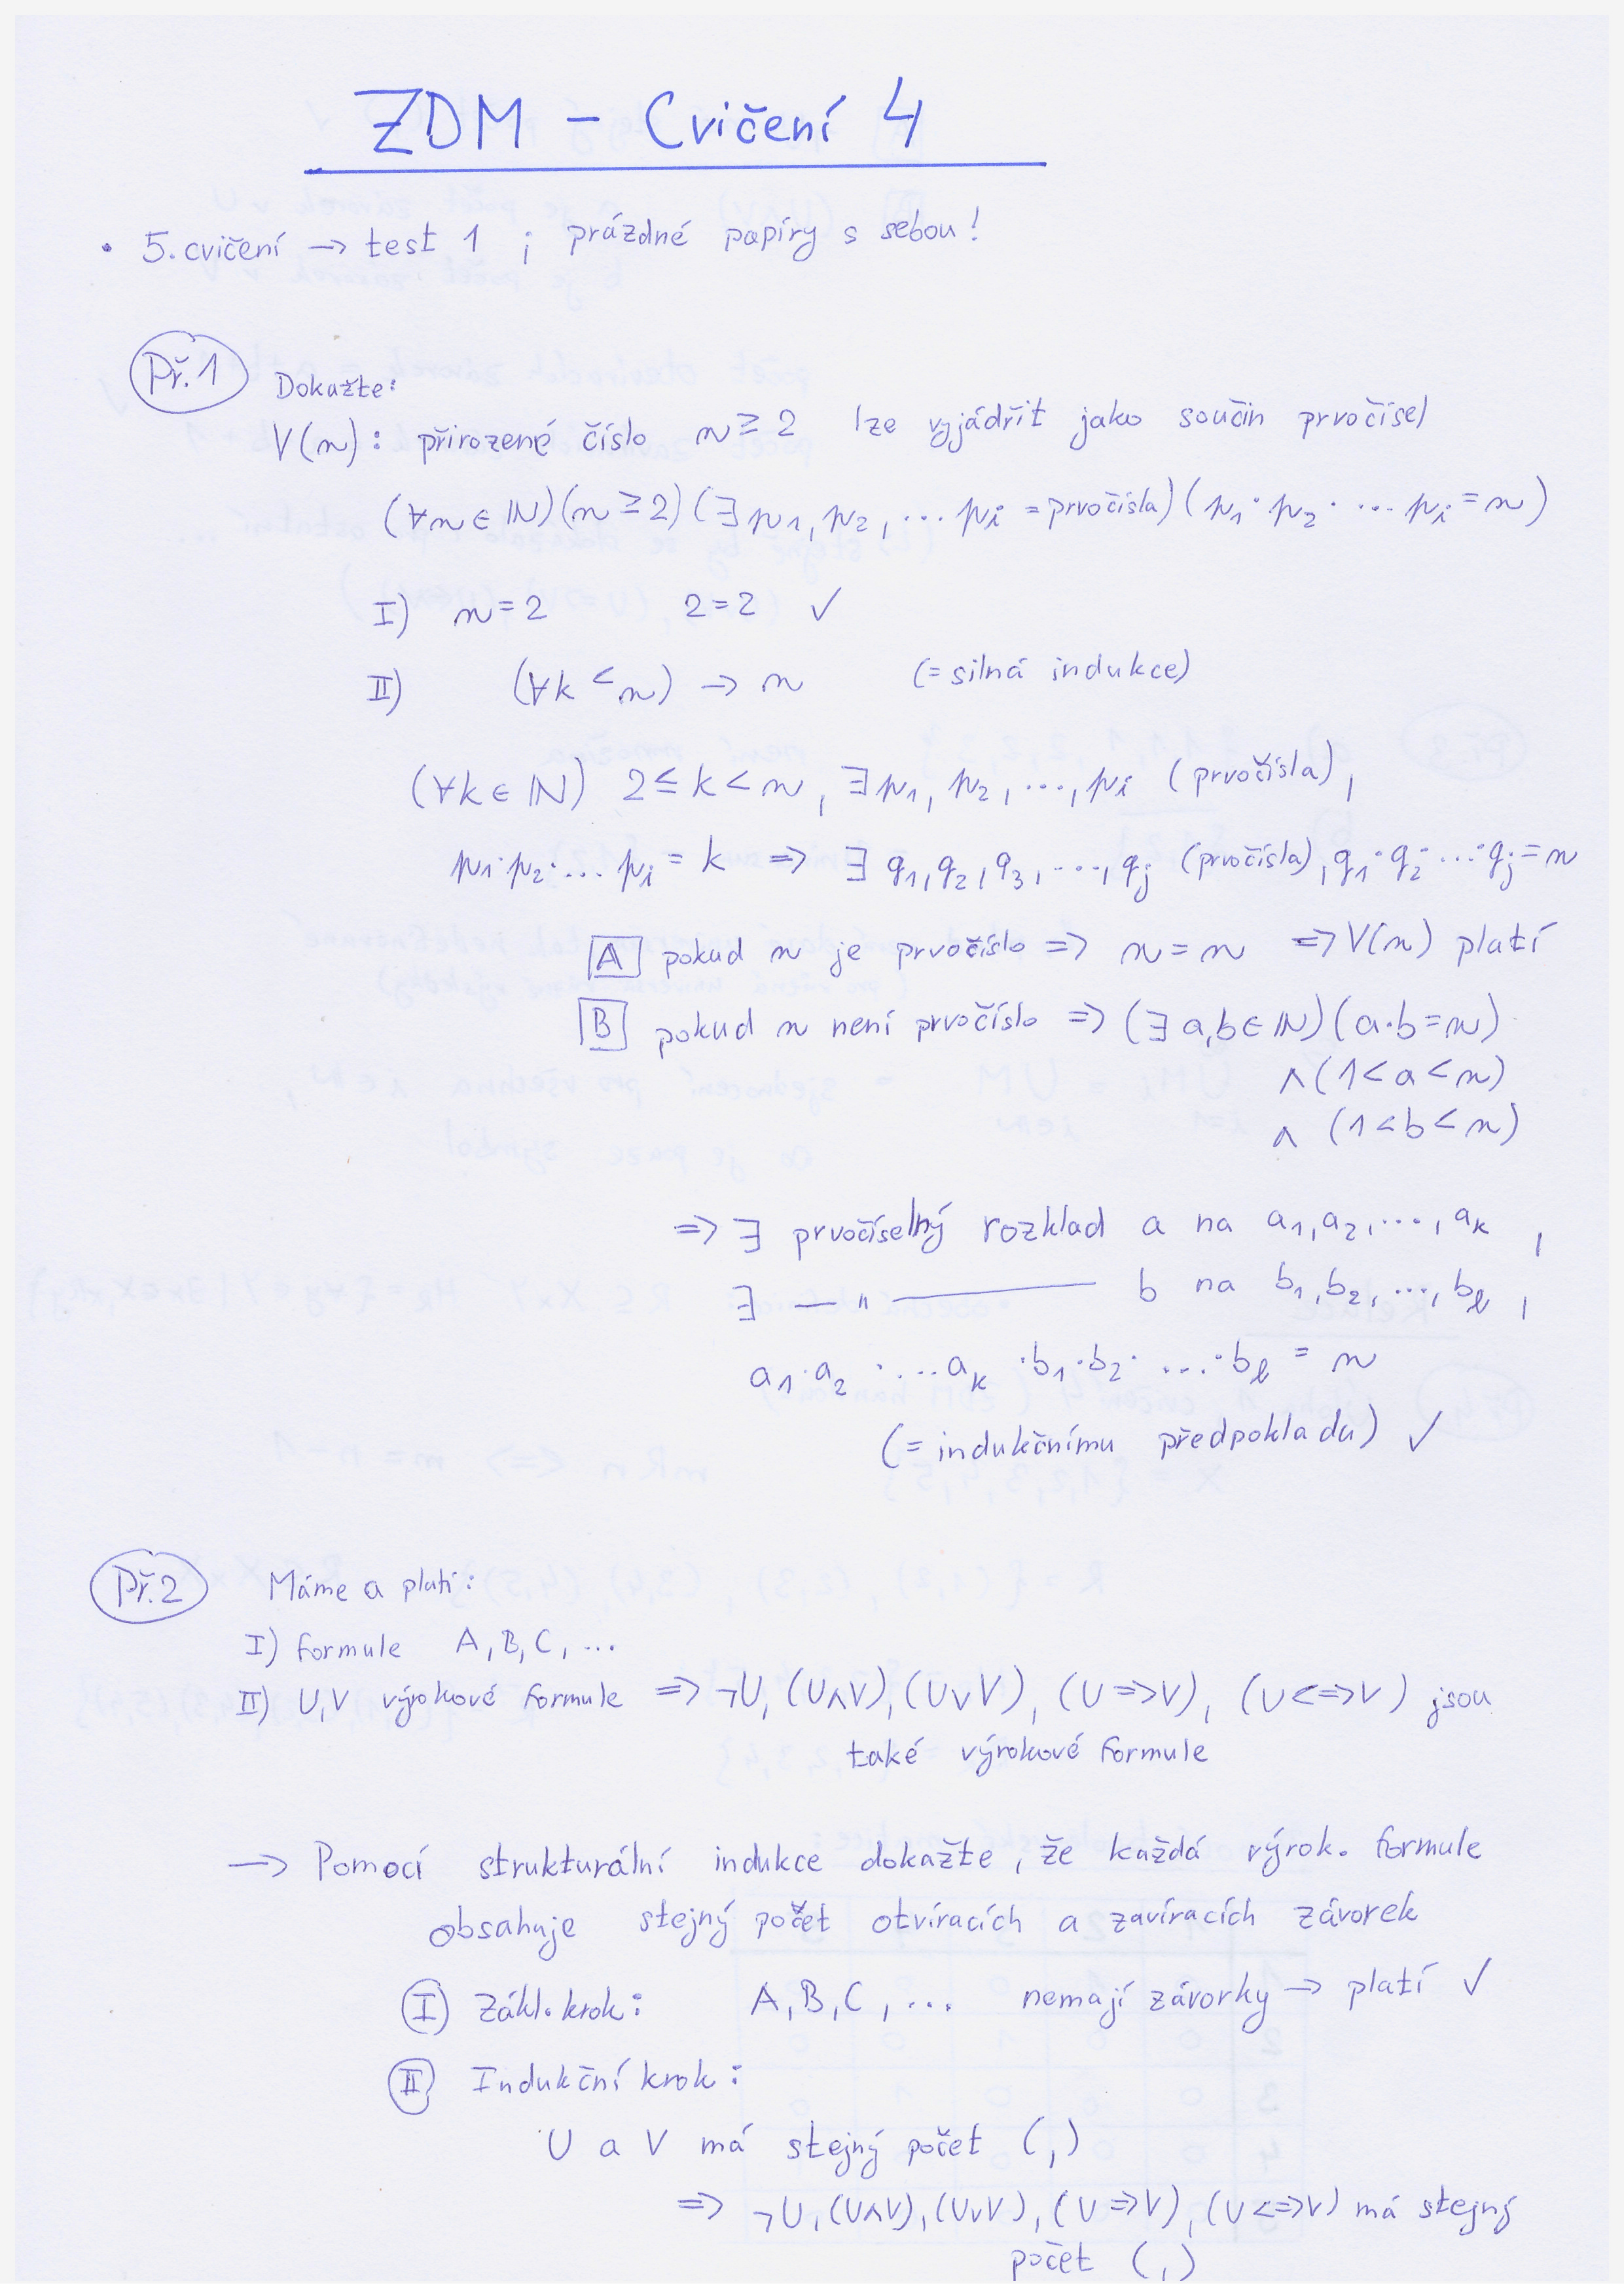 ZDM - Cvičení 4
• 5. cvičení → test 1 ; prázdné papíry s sebou!
Př.1 Dokažte:
V(n): přirozené číslo n ≥ 2 lze vyjádřit jako součin prvočísel
(∀n ∈ ℕ)(n ≥ 2)(∃ p₁, p₂, ... pᵢ = prvočísla)(p₁ · p₂ · ... pᵢ = n)
I) n = 2 2 = 2 ✓
II) (∀k < n) → n (= silná indukce)
(∀k ∈ ℕ) 2 ≤ k < n, ∃ p₁, p₂, ..., pᵢ (prvočísla),
p₁·p₂·... pᵢ = k ⇒ ∃ q₁, q₂, q₃, ..., qⱼ (prvočísla), q₁·q₂·...·qⱼ = n
A pokud n je prvočíslo ⇒ n = n ⇒ V(n) platí
B pokud n není prvočíslo ⇒ (∃ a,b ∈ ℕ)(a·b = n)
∧ (1 < a < n)
∧ (1 < b < n)
⇒ ∃ prvočíselný rozklad a na a₁, a₂, ..., aₖ ,
∃ — " ——— b na b₁, b₂, ..., bₗ ,
a₁·a₂ ·...aₖ ·b₁·b₂· ...·bₗ = n
(= indukčnímu předpokladu) ✓
Př.2 Máme a platí:
I) formule A, B, C, ...
II) U,V výrokové formule ⇒ ¬U, (U∧V), (U∨V), (U ⇒ V), (U <=> V) jsou
také výrokové formule
→ Pomocí strukturální indukce dokažte, že každá výrok. formule
obsahuje stejný počet otvíracích a zavíracích závorek
I Zákl. krok: A, B, C, ... nemají závorky → platí ✓
II Indukční krok:
U a V má stejný počet (,)
⇒ ¬U, (U∧V), (U∨V), (U ⇒ V), (U <=> V) má stejný
počet (,)